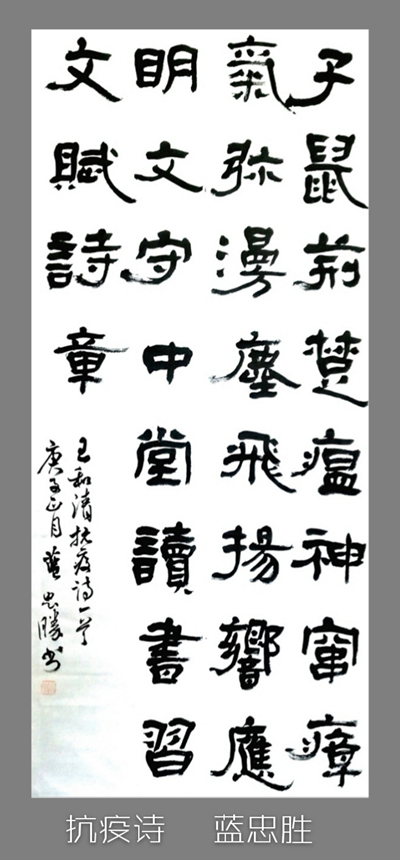 子鼠荆楚瘟神窜瘴
氣弥漫塵飛揚響應
明文守中堂讀書習
文賦詩章
王和清抗疫诗一首
庚子正月蓝忠勝书
抗疫诗 蓝忠胜